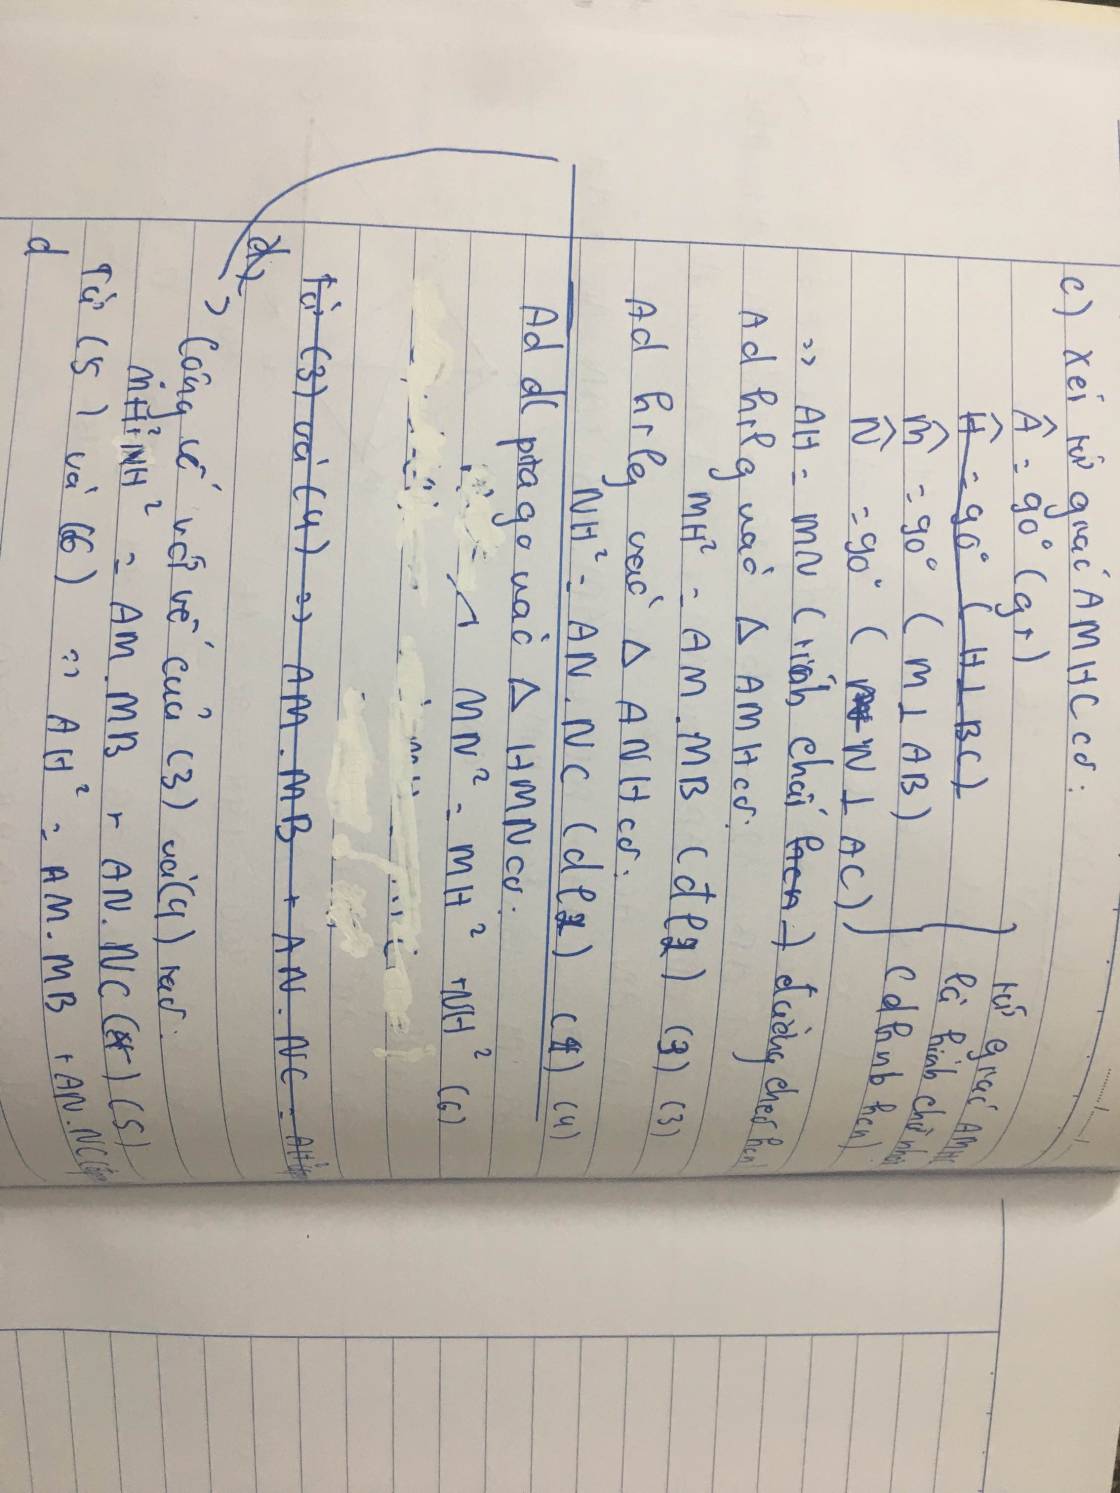 c) Xét tứ giác AMHC có:
Â = 90° (gt)
Ĥ = 90° (H ⊥ BC)
M̂ = 90° (M ⊥ AB)
N̂ = 90° (N ⊥ AC)
tứ giác AMHC
là hình chữ nhật
(dhnb hcn)
=> AH = MN (tính chất hcn) đường chéo hcn)
Ad htlg vào Δ AMH có:
MH² = AM.MB (đl2) (3)
Ad htlg vào Δ ANH có:
NH² = AN.NC (đl2) (4)
Ad đl pitago vào Δ HMN có:
MN² = MH² + NH² (6)
Từ (3) và (4) => AM.MB + AN.NC = AH²
d)
Cộng vế với vế của (3) và (4) ta có:
MH² + NH² = AM.MB + AN.NC (5)
Từ (5) và (6) => AH² = AM.MB + AN.NC
d